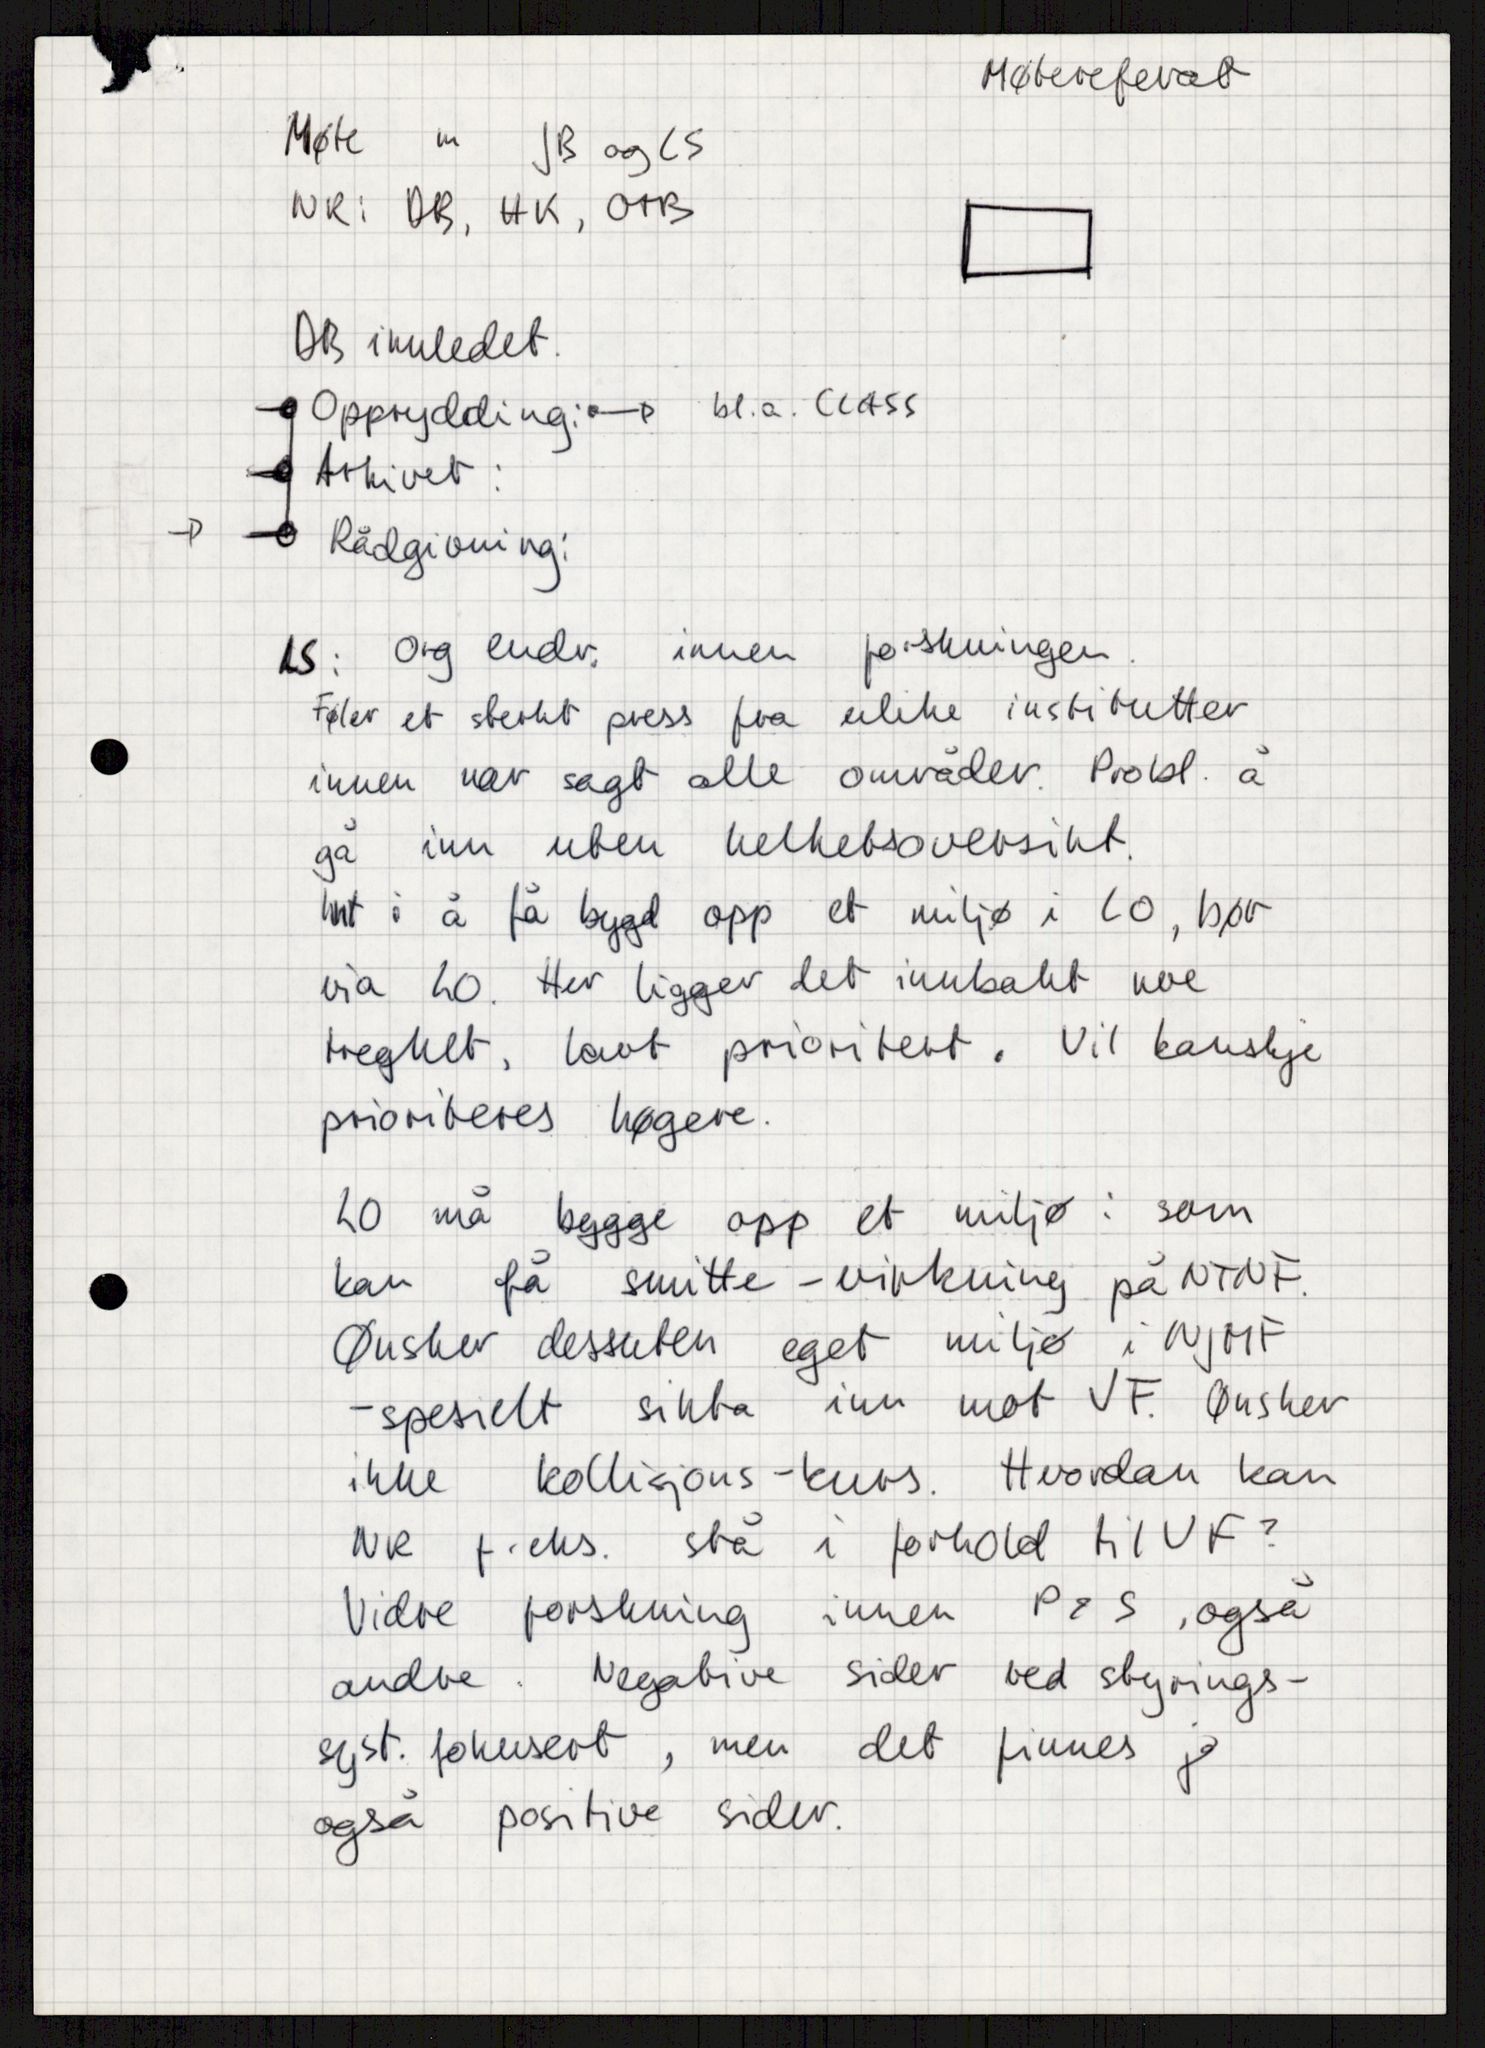 Møtereferat
Møte m JB og LS
NR: DB, HK, OTB
DB innledet.
Opprydding: → bl.a. CLASS
Arkivet:
→ Rådgivning:
LS: Org endr. innen forskningen.
Føler et sterkt press fra ulike institutter
innen nær sagt alle områder. Probl. å
gå inn uten helhetsoversikt.
Int i å få bygd opp et miljø i LO, bør
via LO. Her ligger det innbakt noe
treghet, lavt prioritert. Vil kanskje
prioriteres høgere.
LO må bygge opp et miljø: som
kan få smitte-virkning på NTNF.
Ønsker dessuten eget miljø i NJMF
-spesielt sikta inn mot VF. Ønsker
ikke kollisjons-kurs. Hvordan kan
NR f.eks. stå i forhold til VF?
Vidre forskning innen P & S, også
andre. Negative sider ved styrings-
syst. fokusert, men det finnes jo
også positive sider.